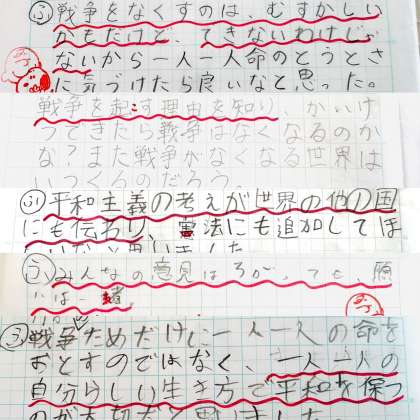 ふ 戦争をなくすのは、むずかしい
かもだけど、できないわけじゃ
ないから一人一人命のとうとさ
に気づけたら良いなと思った。
戦争を起こす理由を知り、かいけ
つできたら戦争はなくなるのか
な？また戦争がなくなる世界は
いつくるのだろう。
ふり 平和主義の考えが世界の他の国
にも伝わり、憲法にも追加してほ
う みんなの意見はちがっても、願
いは一緒。
う 戦争ためだけに一人一人の命を
おとすのではなく、一人一人の
自分らしい生き方で平和を保つ
のが大切だと思いました